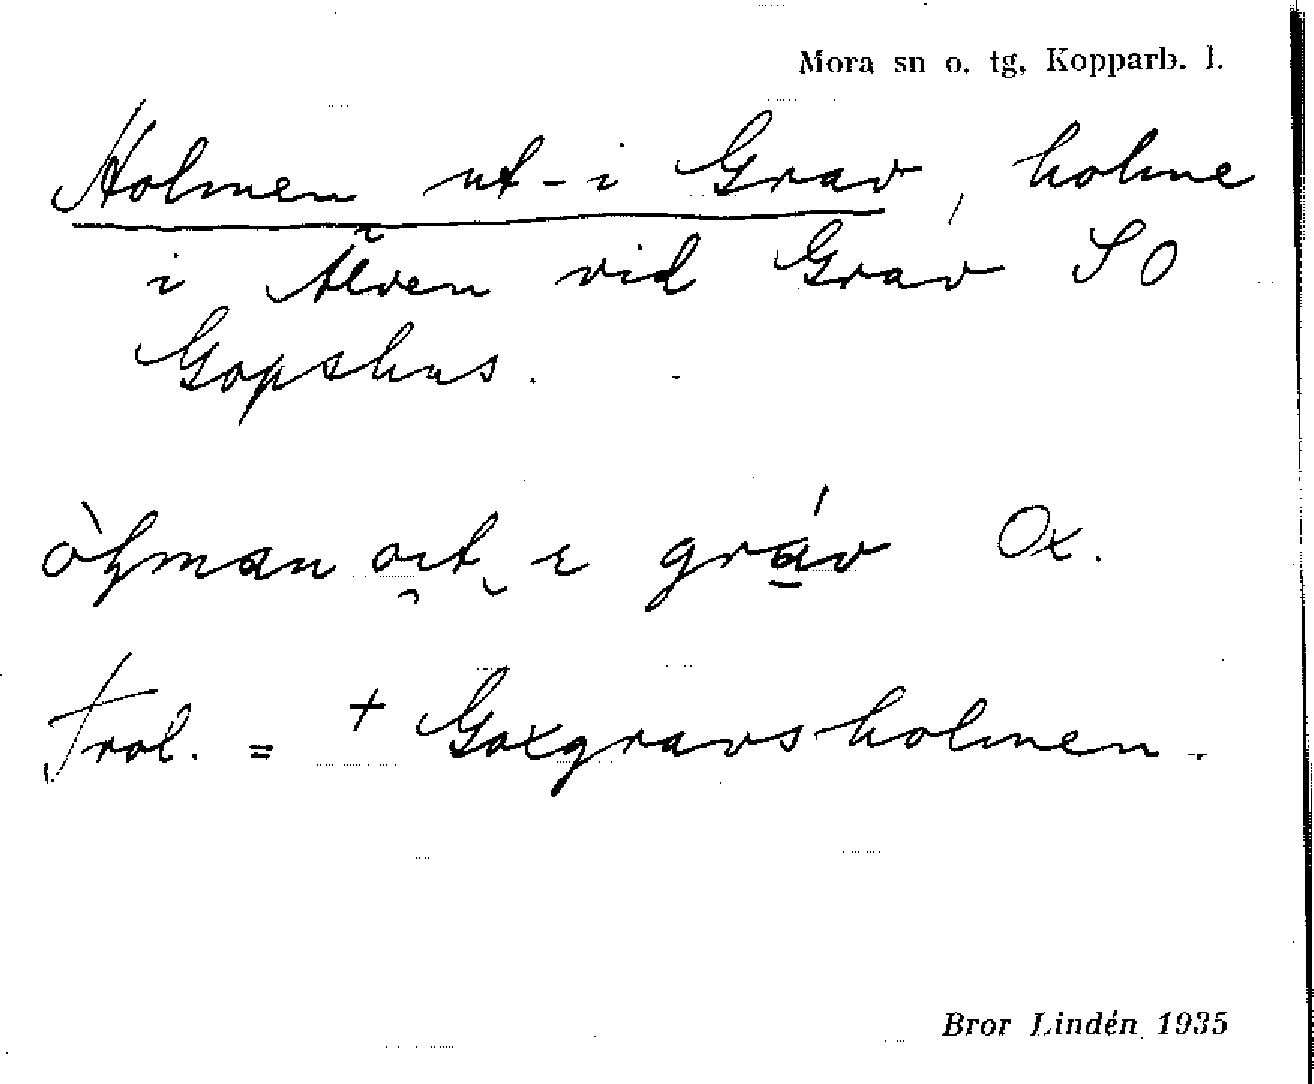 Mora sn o. tg, Kopparb. l.
Holmen ut-i Grav, holme
i Älven vid Grav SO
Gopshus.
gráv Ox.
Trol. = + Goxgravsholmen.
Bror Lindén 1935